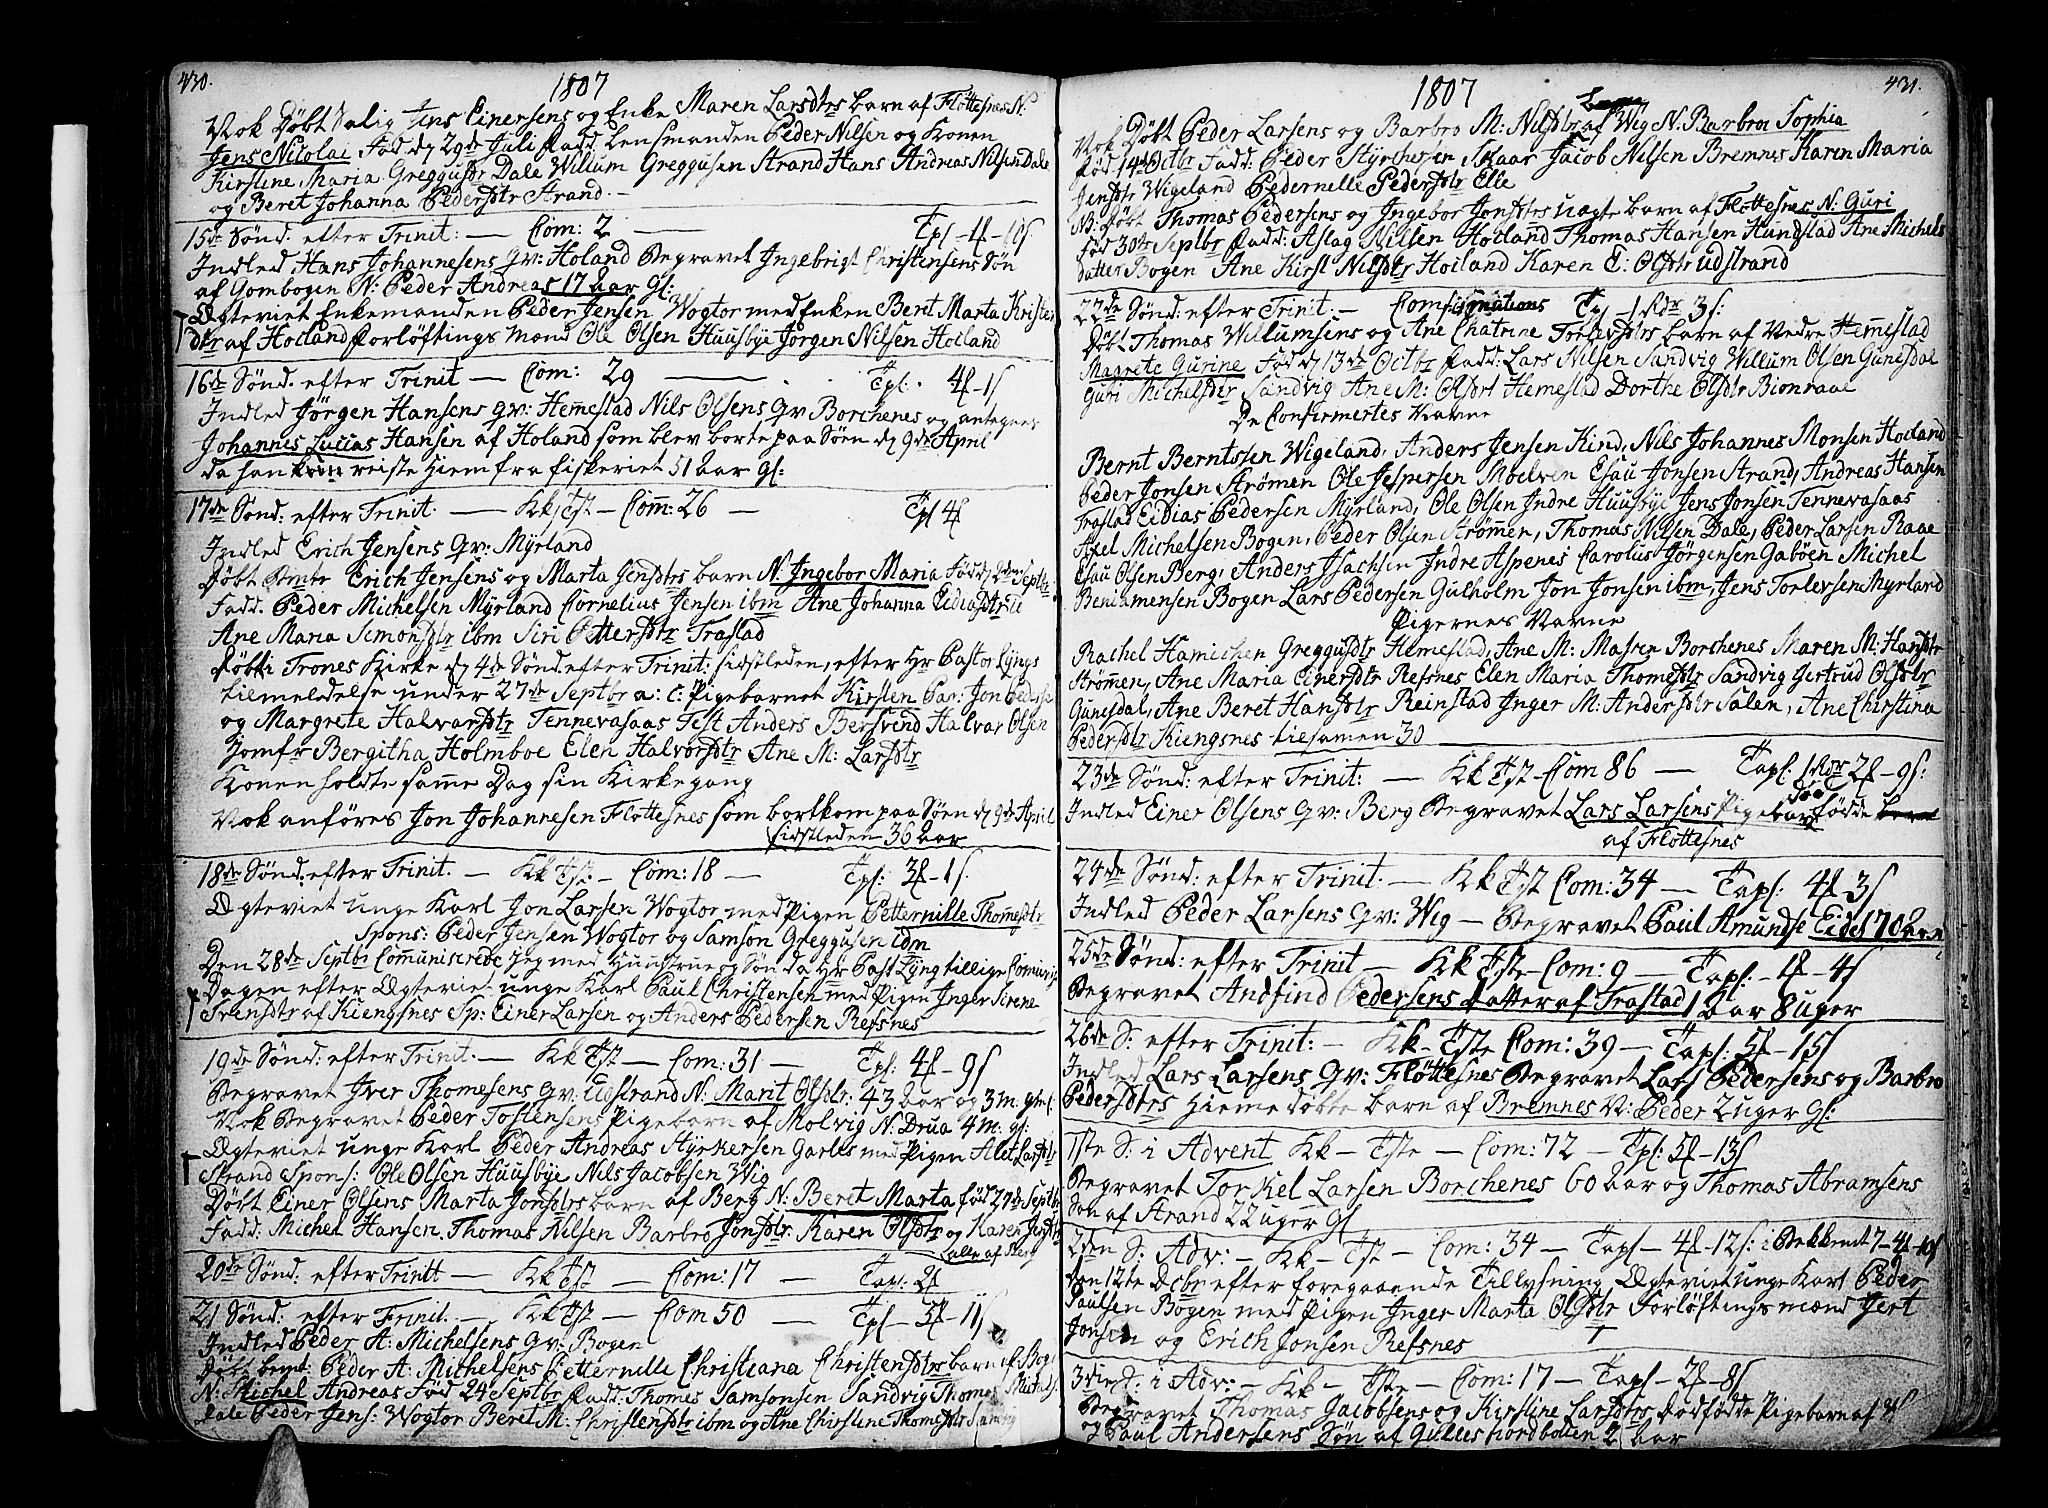 430.
1807
Nok Døbt Salig Jens Einersens og Enke Maren Larsdtrs barn af Fløttesnes N.
Jens Nicolai Fød d 29de Juli Fadd. Lensmanden Peder Nilsen og Konen
Kirstine Maria Greggusdr Dale Willum Greggusen Strand Hans Andreas Nilsen Dale
og Beret Johanna Pedersdtr Strand. -
15de Sønd. efter Trinit: — Com: 2 —
Indled Hans Johannesens Gv: Holand Begravet Ingebrigt Christensens Søn
af Gombogen N: Peder Andreas 17 Aar Gl:
Ægteviet Enkemanden Peder Jensen Wogtor med Enken Bert Marta Krister
dtr af Hoiland Forløftings Mænd Ole Olsen Huusbye Jørgen Nilsen Hoiland
16de Sønd. efter Trinit — Com: 29 — Tpl: 4f-1s
Indled Jørgen Hansens Gv: Hemmestad Nils Olsens Gv Borchenes og antegnes
Johannes Luccas Hansen af Holand som blev borte paa Søen d 9de April
da han reiste Hiem fra fiskeriet 51 Aar Gl:
17de Sønd: efter Trinit. — Kk Tst — Com: 26 — Tpl 4f
Indled Erich Jensens Gv: Myrland
Døbt Erich Jensens og Marta Jensdtrs barn N. Ingebor Maria Fød d Septbr
Fadd. Peder Michelsen Myrland Cornelius Jensen ibm Ane Johanna Eidiasdtr
Ane Maria Simonsdtr ibm Siri Pettersdtr Trastad
Døbt i Trones Kirke d 4de Sønd. efter Trinit: sidstleden, efter Hr Pastor Lyngs
tilmeldelse under 27de Septbr a: c: Pigebarnet Kirsten Par: Jon Peders
og Margrete Halvarsdtr Tennevasaas Test Anders Bersvend Halvar Olsen
Jomfr Bergitha Holmboe Elen Halvorsdtr Ane M: Larsdtr
Konen holdte samme Dag sin Kirkegang
Nok anføres Jon Johannesen Fløttesnes som bortkom paa Søen d 9de April
sidstleden 36 Aar
18de Sønd: efter Trinit. — Kk Tst — Com: 18 — Tpl: 3f-1s.
Ægteviet unge Karl Jon Larsen Wogtor med Pigen Petternille Thomesdtr
Spons: Peder Jensen Wogtor og Samson Greggusen idm
Den 28de Septbr Comuniscerede Jeg med Huustrue og Søn da Hr Past Lyng tillige
Dagen efter Ægteviet unge Karl Paul Christensen med Pigen Inger Sirene
af Kiengsnes Sp: Einer Larsen og Anders Pedersen Refsnes
19de Sønd: efter Trinit. — Kk Tst — Com: 31 — Tpl: 4f-9s
Begravet Iver Thomesens Gv: Udstrand N: Marit Olsdtr: 43 Aar og 3 m. gml.
Nok Begravet Peder Tostensens Pigebarn af Molvig N: Drua 4 m. gl:
Ægteviet unge Karl Peder Andreas Styrkersen Garles med Pigen Alet Larsdtr
Strand Spons: Ole Olsen Huusbye Nils Jacobsen Wig
Døbt Einer Olsens Marta Jonsdtrs barn af Berg N: Beret Marta fød 27de Septbr
Fadd: Michel Hansen. Thomas Nilsen Barbro Jonsdtr: Karen Olsdtr og Karen Jonsdtr
alle af Berg
20de Sønd: efter Trinit — Kk Tst — Com: 17 — Tapl: 2f
21 Sønd: efter Trinit. — Kk Tst — Com 50 — Tpl — 3f — 11s
Indled Peder A: Michelsens Gv: Bogen
Døbt Peder A: Michelsens Petternille Christiana Christensdtrs barn af Bogen
N: Michel Andreas Fød 24 Septbr Fadd: Thomas Samsonsen Sandvig Thomas Michels
Dale Peder Jens: Wogtor Beret M: Christensdtr ibm og Ane Chirstine Thomesdtr Sandvig
431.
1807
Nok Døbt Peder Larsens og Barbro M: Nilsdtrs af Wig N. Barbroe Sophia
fød 14de Octbr Fadd: Peder Styrchersen Skaar Jacob Nilsen Bremnes Karen Maria
Jensdtr Wigeland Pedernelle Pedersdtr Elle
NB. Døbt Thomas Pedersens og Ingebor Jonsdtrs uægte barn af Fløttesnes N: Guri
fød 30te Septbr Fadd: Aslag Nilsen Hoiland Thomas Hansen Hundstad Ane Michels
datter Bogen Ane Kirst Nilsdtr Hoiland Karen E: Olsdtr Udstrand
22de Sønd: efter Trinit. — Confirmations Tp 1 Rdr 3s:
Døbt Thomas Willumsens og Ane Chatrine Torlevsdtrs barn af Vedre Hemmestad
Magrete Gurine Fød d 13de Octbr Fadd: Lars Nilsen Sandvig Willum Olsen Gunesdal
Guri Michelsdtr Sandvig Ane M: Olsdrt Hemestad Dorthe Olsdtr Bionraae
De Confirmertes Navne
Bernt Berntssen Wigeland, Anders Jensen Kind, Nils Johannes Monsen Hoiland
Peder Jonsen Strømen Ole Jespersen Moelven Esau Jonsen Strand, Andreas Hansen
Trastad Eidias Pedersen Myrland, Ole Olsen Indre Huusbye Jens Jonsen Tennevasaas
Axel Michelsen Bogen, Peder Olsen Strømmen, Thomas Nilsen Dale, Peder Larsen Raae
Esau Olsen Berg, Anders Isachsen Indre Aspenes Carolus Jørgensen Gabøen Michel
Beniamensen Bogen Lars Pedersen Gulholm Jon Jonsen ibm, Jens Torlevsen Myrland
Pigernes Navne
Rachel Hamichen Greggusdtr Hemestad, Ane M: Masren Borchenes Maren M: Hansdtr
Strømmen, Ane Maria Einersdtr Refsnes Elen Maria Thomesdtr Sandvig Gertrud Olsdtr
Gunesdal, Ane Beret Hansdtr Reinstad Inger M: Andersdtr Salen, Ane Chirstina
Pedersdtr Kiengsnes tilsamen 30
23de Sønd: efter Trinit: — Kk Tst — Com 86 — Tapl: 1 Rdr 2f - 9s:
Indled Einer Olsens Gv: Berg Begravet Lars Larsens Pigebarn fødde
af Fløttesnes
24de Sønd: efter Trinit. — Kk Tst Com: 34 — Tapl: 4f-3s
Indled Peder Larsens Gv: Wig — Begravet Paul Amundse Eidet 70 Aar
25de Sønd: efter Trinit — Kk Tste Com: 9 — Tapl: - 1f - 4s
Begravet Andfind Pedersens Datter af Trastad 1 Aar 8 uger
26de S: efter Trinit: — Kk - Tste Com: 39 — Tapl: 5f - 15s
Indled Lars Larsens Gv: Fløttesnes Begravet Lars Pedersens og Barbro
Pedersdtrs Hiemedøbte barn af Bremnes N: Peder 2 uger Gl:
1ste S: i Advent Kk - Tste — Com: 72 — Tpl: 5f - 13s
Begravet Torkel Larsen Borchenes 60 Aar og Thomas Abramsens
Søn af Strand 22 uger Gl
2den S: Adv: — Kk — Tst — Com: 34 — Tapl — 4f - 12s: i Bekkent 7-4f-10s
Den 12te Decbr efter foregaaende Tillysning Ægteviet unge Karl Peder
Paulsen Bogen med Pigen Inger Marta Olsdtr Forløftings mænd Gert
Jonsen og Erich Jonsen Refsnes
3die S: i Adv: — Kk — Tste — Com: 17 — Tapl — 2f - 8s
Begravet Thomas Jacobsens og Kirstine Larsdtrs Dødfødte Pigebarn af
og Paul Andersens Søn af Gulles fiordbotten 2 Aar